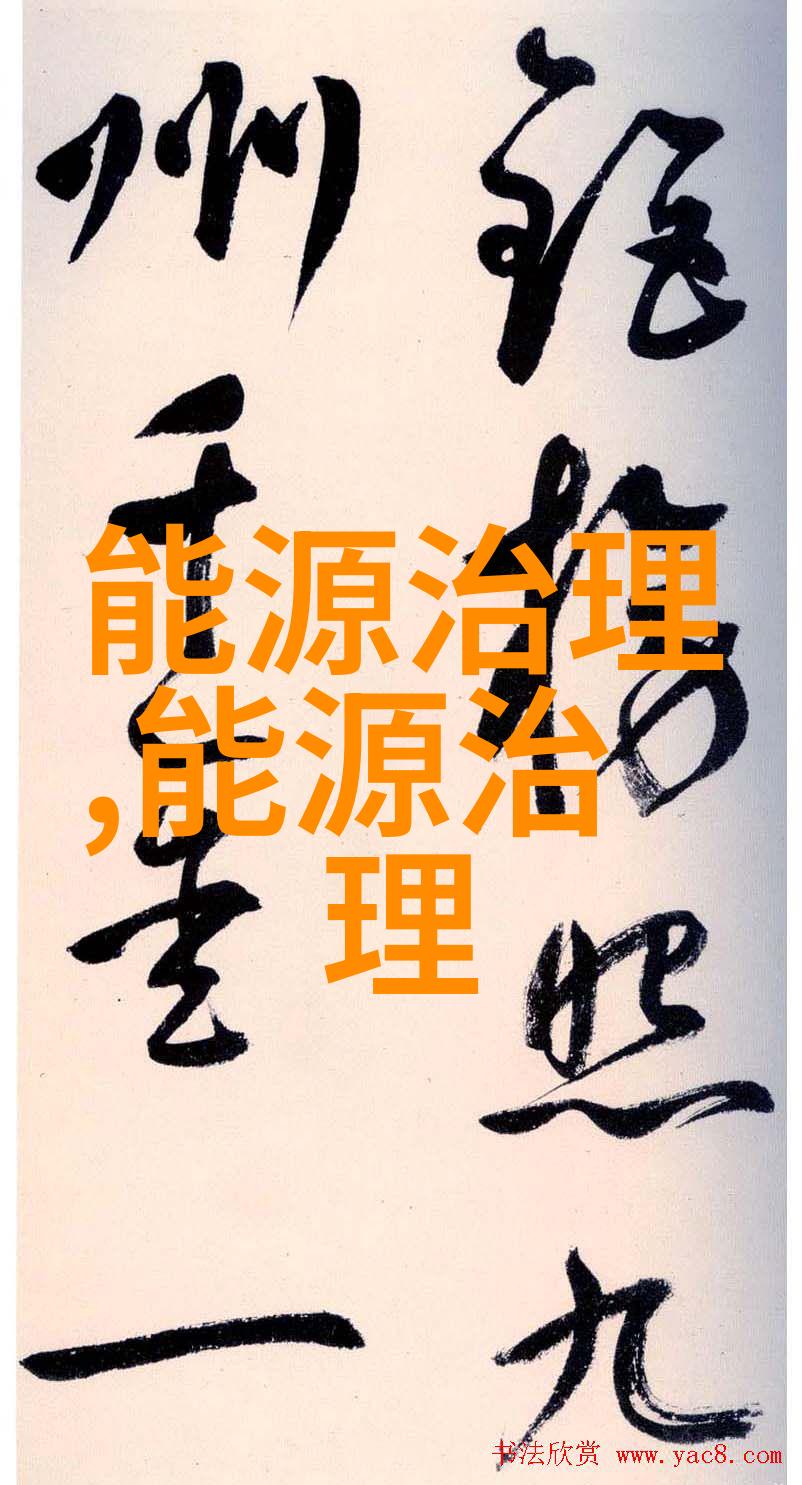 照九
州千一
能源治理
,能源治
理
书法欣赏 www.yac8.com